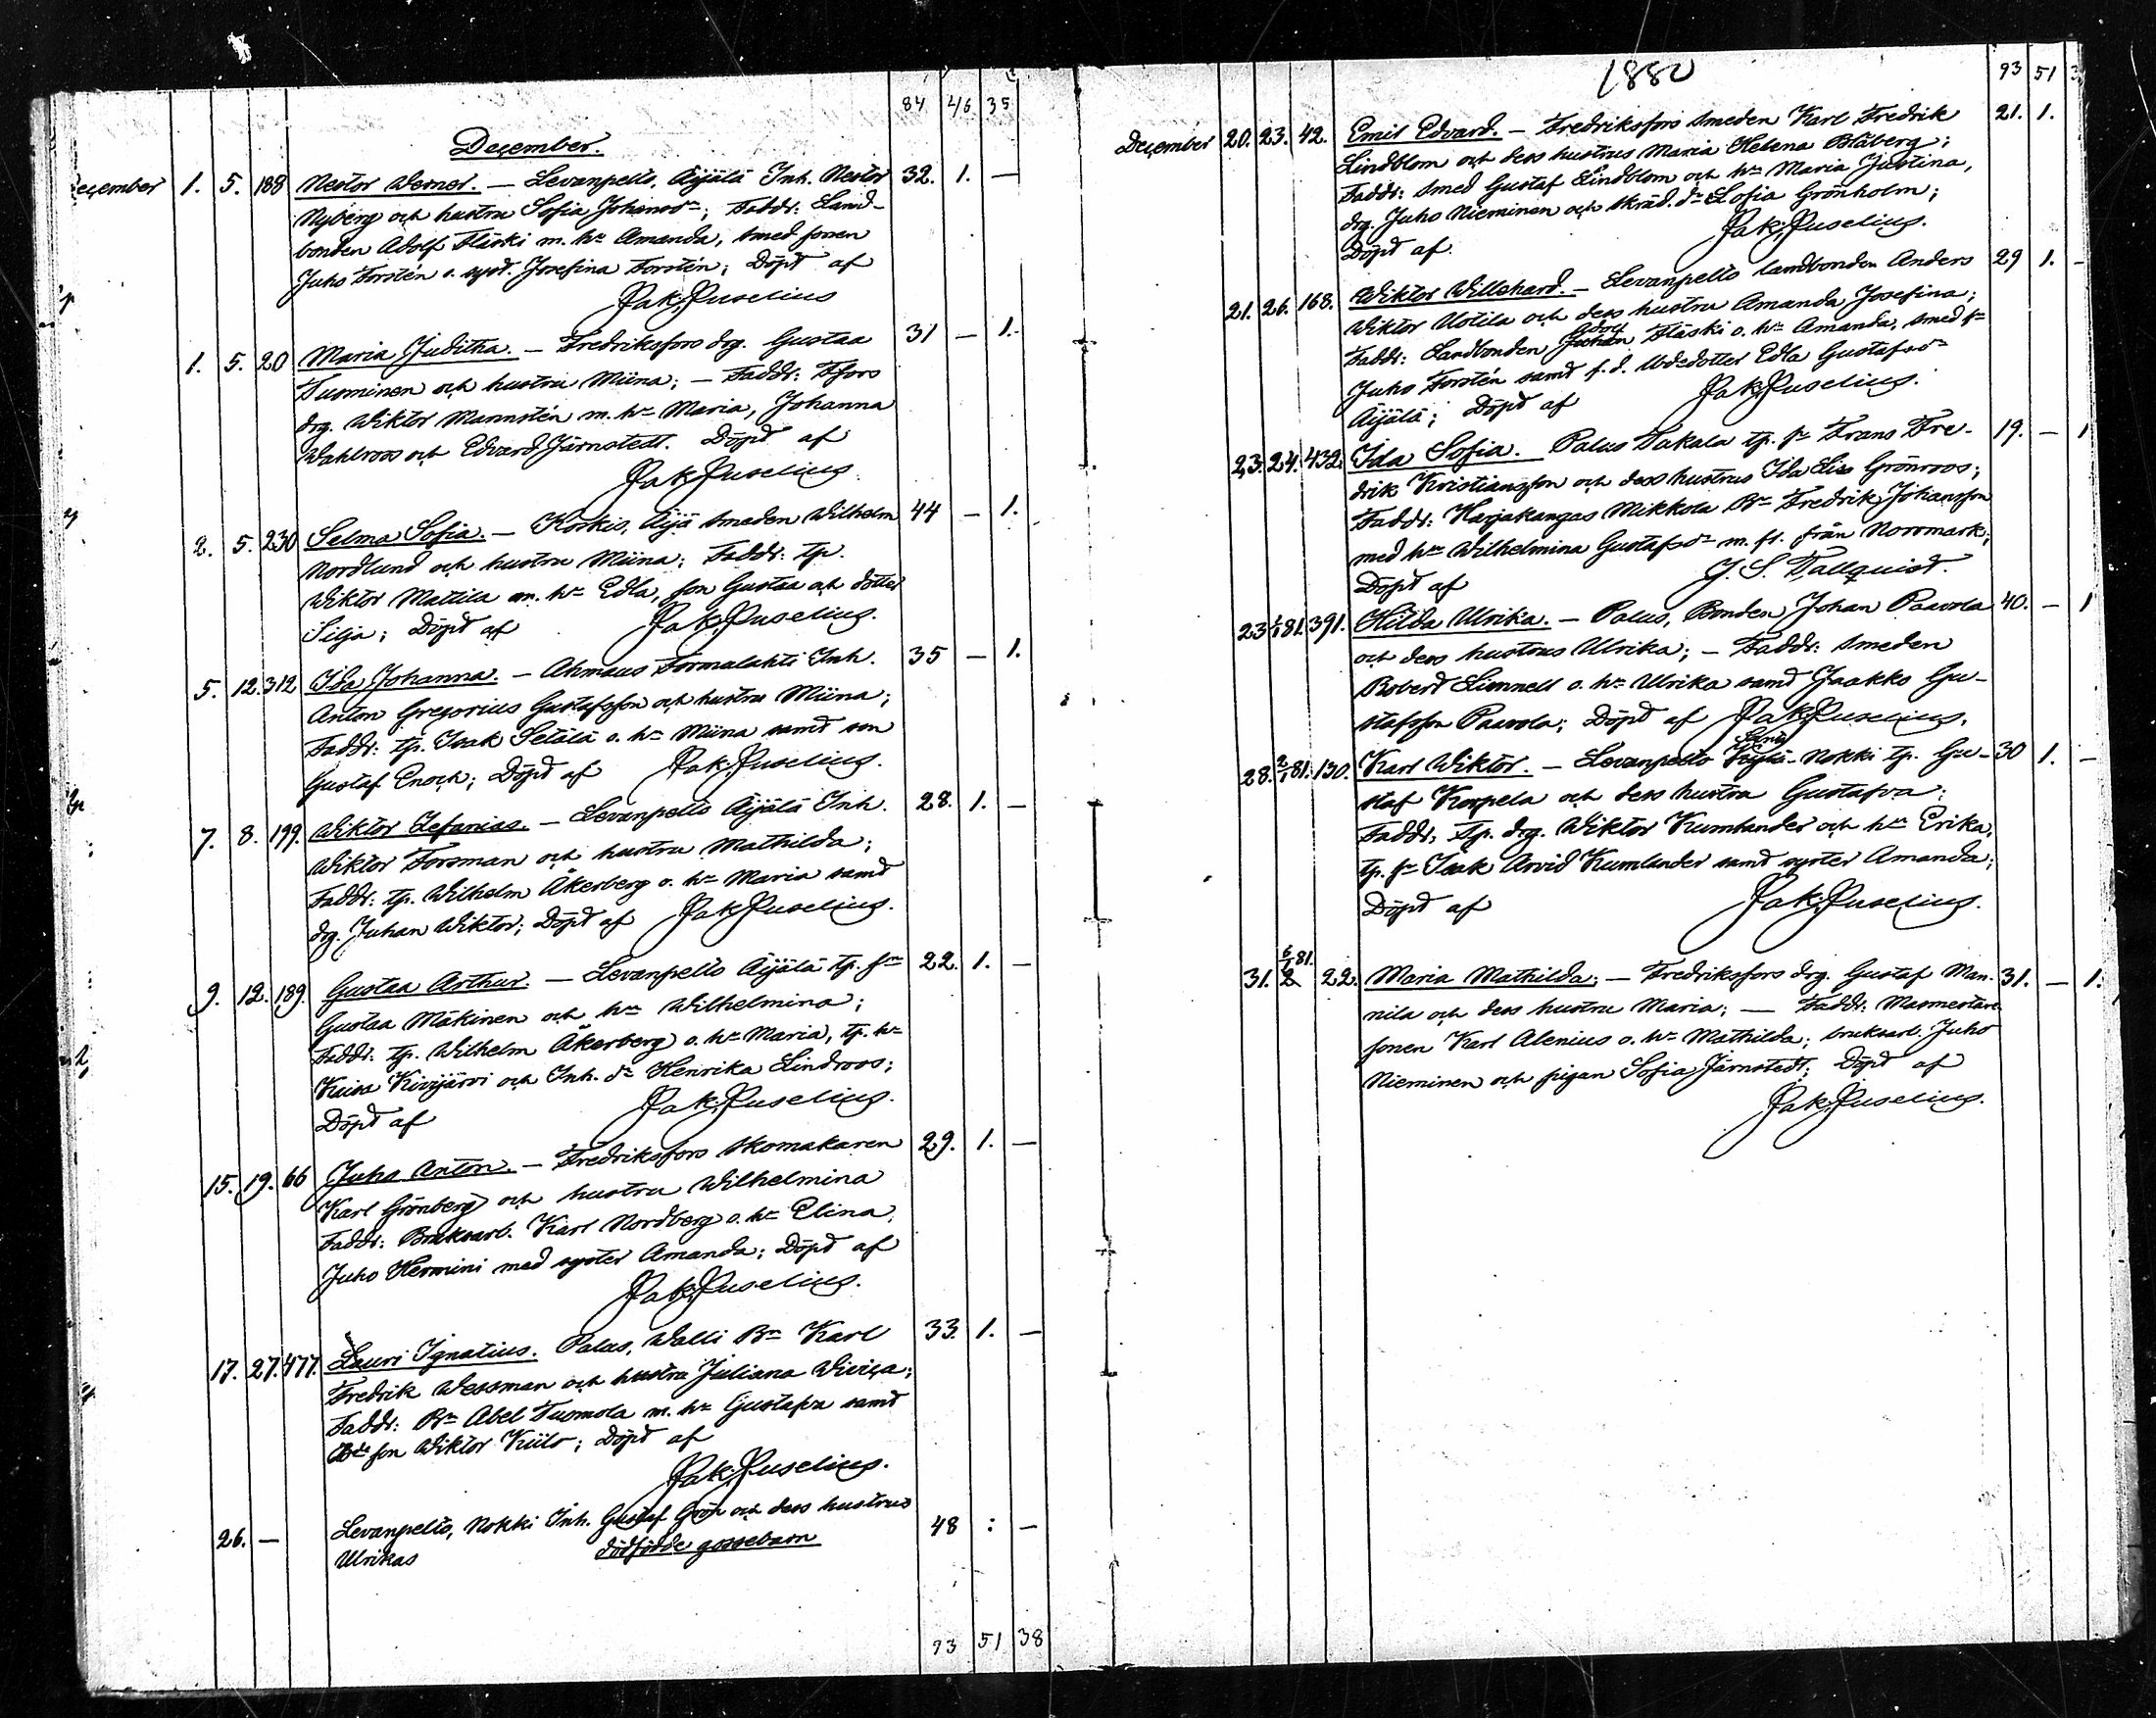 84 46 35
December.
December 1. 5. 188 Nestor Werner. — Levanpelto, Äijälä Inh. Nestor 32. 1. —
Nyberg och hustru Sofia Johansdr; Faddr: Land-
bonden Adolf Fläski m. hu Amanda, smed sonen
Juho Forstén o. syst. Josefina Forstén; Döpt af
Jak. Juselius
1. 5. 20 Maria Juditha. — Fredriksfors drg. Gustaa 31 — 1.
Tuominen och hustru Miina; — Faddr: Ffors
drg. Wiktor Mannstén m. hu Maria, Johanna
Wahlroos och Edvard Järnstedt. Döpt af
Jak Juselius
2. 5. 230 Selma Sofia. — Koskis, Äijä smeden Wilhelm 44 — 1.
Nordlund och hustru Miina; Faddr: tp.
Wiktor Mattila m. hu Edla, son Gustaa och dotter
Silja; Döpt af Jak. Juselius.
5. 12. 312 Ida Johanna. — Ahmaus Formalahti Inh. 35 — 1.
Anton Gregorius Gustafsson och hustru Miina;
Faddr: tp. Isak Setälä o. hu Miina samt son
Gustaf Enoch; Döpt af Jak. Juselius.
7. 8. 199. Wiktor Zefanias. — Levanpelto Äijälä Inh. 28. 1. —
Wiktor Forsman och hustru Mathilda;
Faddr: tp. Wilhelm Åkerberg o. hu Maria samt
drg. Juhan Wiktor; Döpt af Jak Juselius.
9. 12. 189. Gustaa Arthur. — Levanpelto Äijälä tp. sn 22. 1. —
Gustaa Mäkinen och hu Wilhelmina;
Faddr: tp. Wilhelm Åkerberg o. hu Maria, tp. hu
Kiisa Kivijärvi och Inh. dr Henrika Lindroos;
Döpt af Jak. Juselius.
15. 19. 66 Juho Anton. — Fredriksfors skomakaren 29. 1. —
Karl Grönberg och hustru Wilhelmina
Faddr: Bruksarb. Karl Nordberg o. hu Elina,
Juho Hermini med syster Amanda; Döpt af
Jak. Juselius.
17. 27. 477. Lauri Ignatius. Palus, Walli Bn Karl 33. 1. —
Fredrik Wessman och hustru Juliana Wivica;
Faddr: Bn Abel Tuomola m. hu Gustafva samt
son Wiktor Kiilo; Döpt af
Jak. Juselius.
26. — Levanpelto, Nokki Inh. Gustaf Grön och dess hustrus 48 : —
Ulrikas dödfödde gossebarn
93 51 38
1880
93 51 3
December 20. 23. 42. Emil Edvard. — Fredriksfors smeden Karl Fredrik 21. 1.
Lindblom och dess hustrus Maria Helena Blåberg;
Faddr: smed Gustaf Lindblom och hu Maria Justina,
drg. Juho Nieminen och skräd. dr Sofia Grönholm;
Döpt af. Jak. Juselius.
21. 26. 168. Wiktor Willehard. — Levanpelto landbonden Anders 29 1. —
Wiktor Uotila och dess hustru Amanda Josefina;
Adolf
Faddr: Landbonden Juhan Fläski o. hu Amanda, smed sn
Juho Forstén samt f.d. dotter Edla Gustafsdr
Äijälä; Döpt af Jak Juselius.
23. 24. 432. Ida Sofia. Palus Takala tp. sn Frans Fre- 19. — 1
drik Kristiansson och dess hustrus Ida Lisa Grönroos;
Faddr: Harjakangas Mikkola Bn Fredrik Johansson
med hu Wilhelmina Gustafsdr m. fl. från Norrmark;
Döpt af G. S. Tallquist.
23 1/1 81. 391. Hilda Ulrika. — Palus, Bonden Johan Paavola 40. — 1
och dess hustrus Ulrika; — Faddr: smeden
Robert Lionnell o. hu Ulrika samt Jaakko Gu-
stafsson Paavola; Döpt af Jak Juselius.
28. 2/1 81. 130. Karl Wiktor. — Levanpelto Nokki tp. Gu- 30 1. —
staf Korpela och dess hustru Gustafva;
Faddr: tp. drg. Wiktor Kumlander och hu Erika,
tp. sn Isak Arvid Kumlander samt syster Amanda;
Döpt af Jak. Juselius.
31. 6/1 81. 22. Maria Mathilda; — Fredriksfors drg. Gustaf Man- 31. — 1.
nila och dess hustru Maria; — Faddr: Masmestare
sonen Karl Alenius o. hu Mathilda; bruksarb. Juho
Nieminen och pigan Sofia Järnstedt; Döpt af
Jak. Juselius.